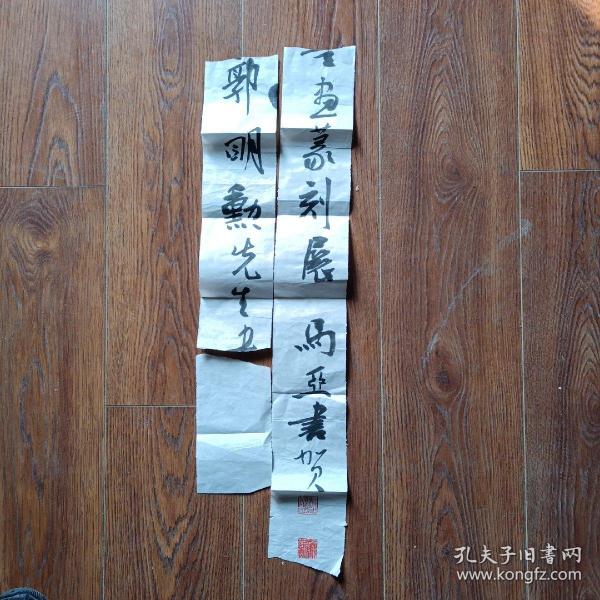 郭明勲先生书
画篆刻展 馬亞書贺
孔夫子旧書网
www.kongfz.com